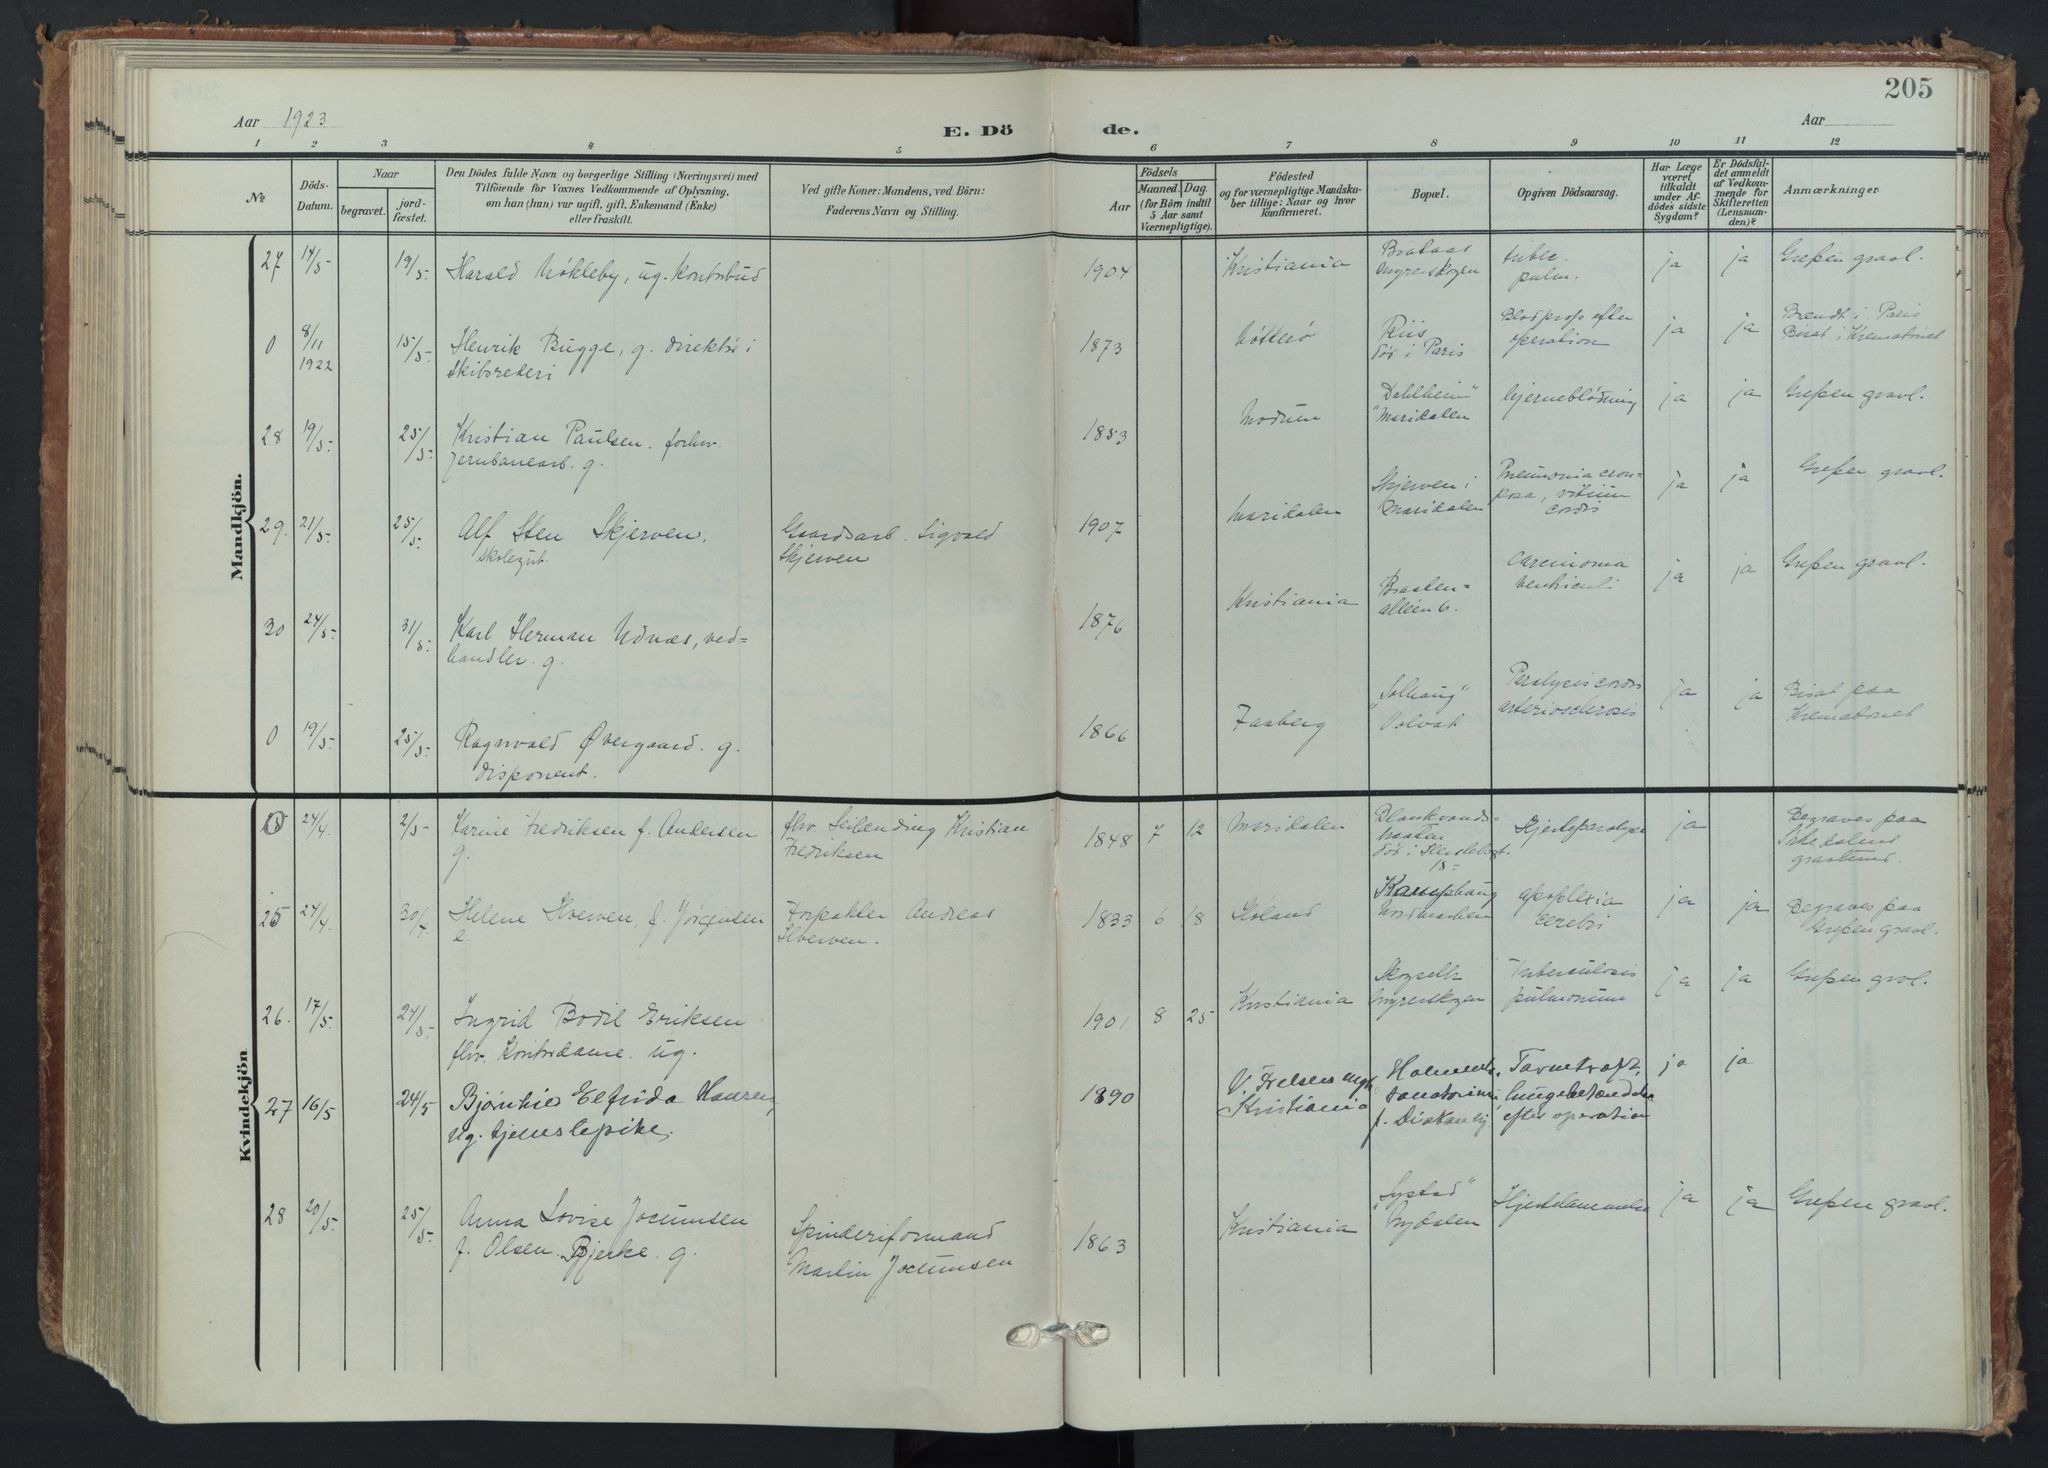 205
Aar 1923
E. Döde.
Aar
1 2 3 3 4 5 6 7 8 9 10 11 12
No.
Döds-Datum.
Naar
begravet.
jord-fæstet.
Den Dödes fulde Navn og borgerlige Stilling (Næringsvei) med
Tilföiende for Voxnes Vedkommende af Oplysning,
om han (hun) var ugift, gift, Enkemand (Enke)
eller fraskilt.
Ved gifte Koner: Mandens, ved Börn:
Faderens Navn og Stilling.
Födsels
Aar
Maaned. Dag.
(for Börn indtil
5 Aar samt
Værnepligtige).
Födested
og for værnepligtige Mandska-
ber tillige: Naar og hvor
konfirmeret.
Bopæl.
Opgiven Dödsaarsag.
Har Læge
været
tilkaldt
under Af-
dödes sidste
Sygdom?
Er Dödsfal-
det anmeldt
af Vedkom-
mende for
Skifteretten
(Lensman-
den)?
Anmærkninger
Mandkjön.
27 14/5- 19/5- Harald Nökleby, ug. kontorbud 1904 Kristiania
Myrerskogen tuble. pulm. ja ja Grefsen gravl.
0 8/11 1922 15/5- Henrik Bugge, g. direktör i
Skibsrederi 1873 Nötterö Riis
död i Paris Blodprop efter
operation ja ja Brændt i Paris
Bisat i Krematoriet
28 19/5- 25/5- Kristian Paulsen. forhv.
Jernbanearb. g. 1853 Modum "Dahlheim"
Maridalen hjerneblödning ja ja Grefsen gravl.
29. 21/5- 25/5- Alf Sten Skjerven,
skolegut. Gaardsarb. Sigvald
Skjerven 1907 Maridalen Skjerven i
Maridalen Pneumonia crou-
posa, vitium
cordis ja ja Grefsen gravl.
30 24/5- 31/5- Karl Herman Udnæs, ved=
handler. g. 1876 Kristiania Braaten-
alléen 6. Carcinoma
ventriculi ja ja Grefsen gravl.
0 19/5- 25/5- Ragnvald Övergaard. g.
disponent. 1866 Faaberg "Solhaug"
Volvat Paralysis cordis
arteriosclerosis ja ja Bisat paa
Krematoriet
Kvindekjön
0 24/4. 2/5- Karine Fredriksen f. Andersen
g. fhv. Kristian
Fredriksen 1848 7 12 Maridalen Blankvands-
braaten
död i Herslebsgt.
15- Hjerteparalyse ja Begraves paa
gravlund.
25 24/4. 30/4 Helene Hverven, f. Jörgensen
e. Forpakter Andreas
Hverven. 1833 6 18 Höland Kamphaug
Nordmarken apoplexia
cerebri ja ja Begraves paa
Grefsen gravl.
26. 17/5- 24/5- Ingrid Bodil Eriksen
fhv. Kontordame. ug. 1901 8 25 Kristiania
Myrerskogen Tuberculosis
pulmonum ja ja Grefsen gravl.
27 16/5 24/5 Elfrida Hansen,
ug. tjenstepike, 1890 V. Frelsers mgh.
Kristiania
sanatorium
f. lungebetændelse
efter operation ja ja
28 20/5- 25/5- Anna Lovise Jocumsen
f. Olsen Bjerke. g. Spinderiformand
Martin Jocumsen 1863 Kristiania "Lystad"
Nydalen Hjertelammelse ja ja Grefsen gravl.